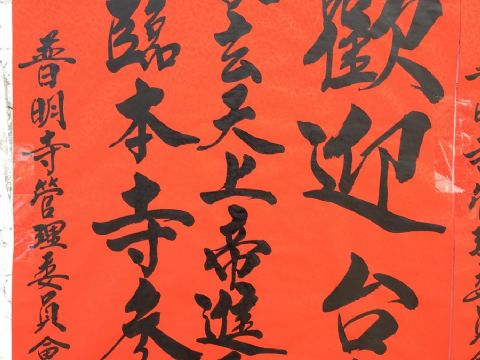 歡迎台
玄天上帝進
臨本寺參
普明寺管理委員會